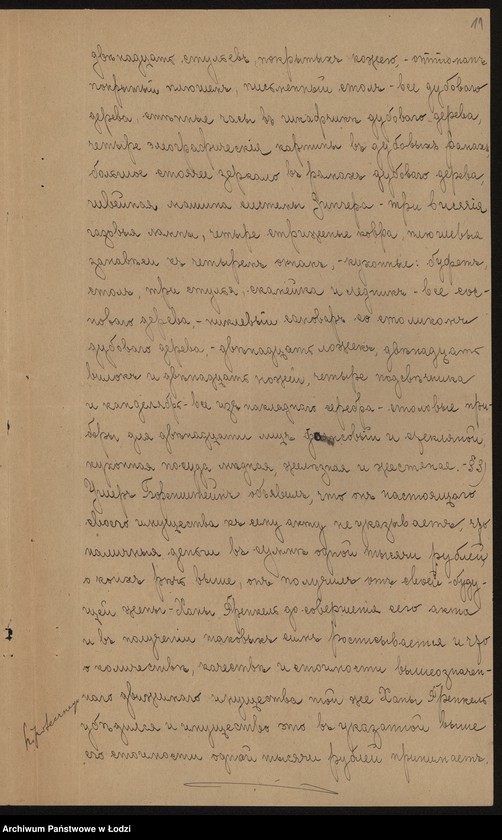 11
двѣнадцать стульевъ, покрытыхъ кожею, - оттоманъ
покрытый плюшемъ, письменный столъ - все дубоваго
дерева, стѣнные часы въ шкафчикѣ дубоваго дерева,
четыре олеографическія картины въ дубовыхъ рамахъ,
большое стоячее зеркало въ рамахъ дубоваго дерева,
швейная машина системы Зингера - три висячія
газовыя лампы, четыре стриженые ковра, плюшевые
занавѣси къ четыремъ окнамъ, - кухонные: буфетъ,
столъ, три стула, скамейка и ледникъ - все сос-
новаго дерева, - никелевый самоваръ со столикомъ
дубоваго дерева, - двѣнадцать ложекъ, двѣнадцать
вилокъ и двѣнадцать ножей, четыре подсвѣчника
и канделябръ - все изъ накладнаго серебра - столовые при-
боры для двѣнадцати лицъ фаянсовый и стеклянный,
кухонная посуда мѣдная, желѣзная и жестяная. - § 3)
Умеръ Боренштейнъ объявилъ, что онъ настоящаго
своего имущества къ сему акту не указываетъ, что
наличныя деньги въ суммѣ одной тысячи рублей
о коихъ рѣчь выше, онъ получилъ отъ своей буду-
щей жены - Ханы Френкель до совершенія сего акта
и въ полученіи таковыхъ симъ росписывается и что
о количествѣ, качествѣ и стоимости вышеозначен-
наго движимаго имущества той же Ханы Френкель
убѣдился и имущество это въ указанной выше
его стоимости одной тысячи рублей принимаетъ.
Archiwum Państwowe w Łodzi